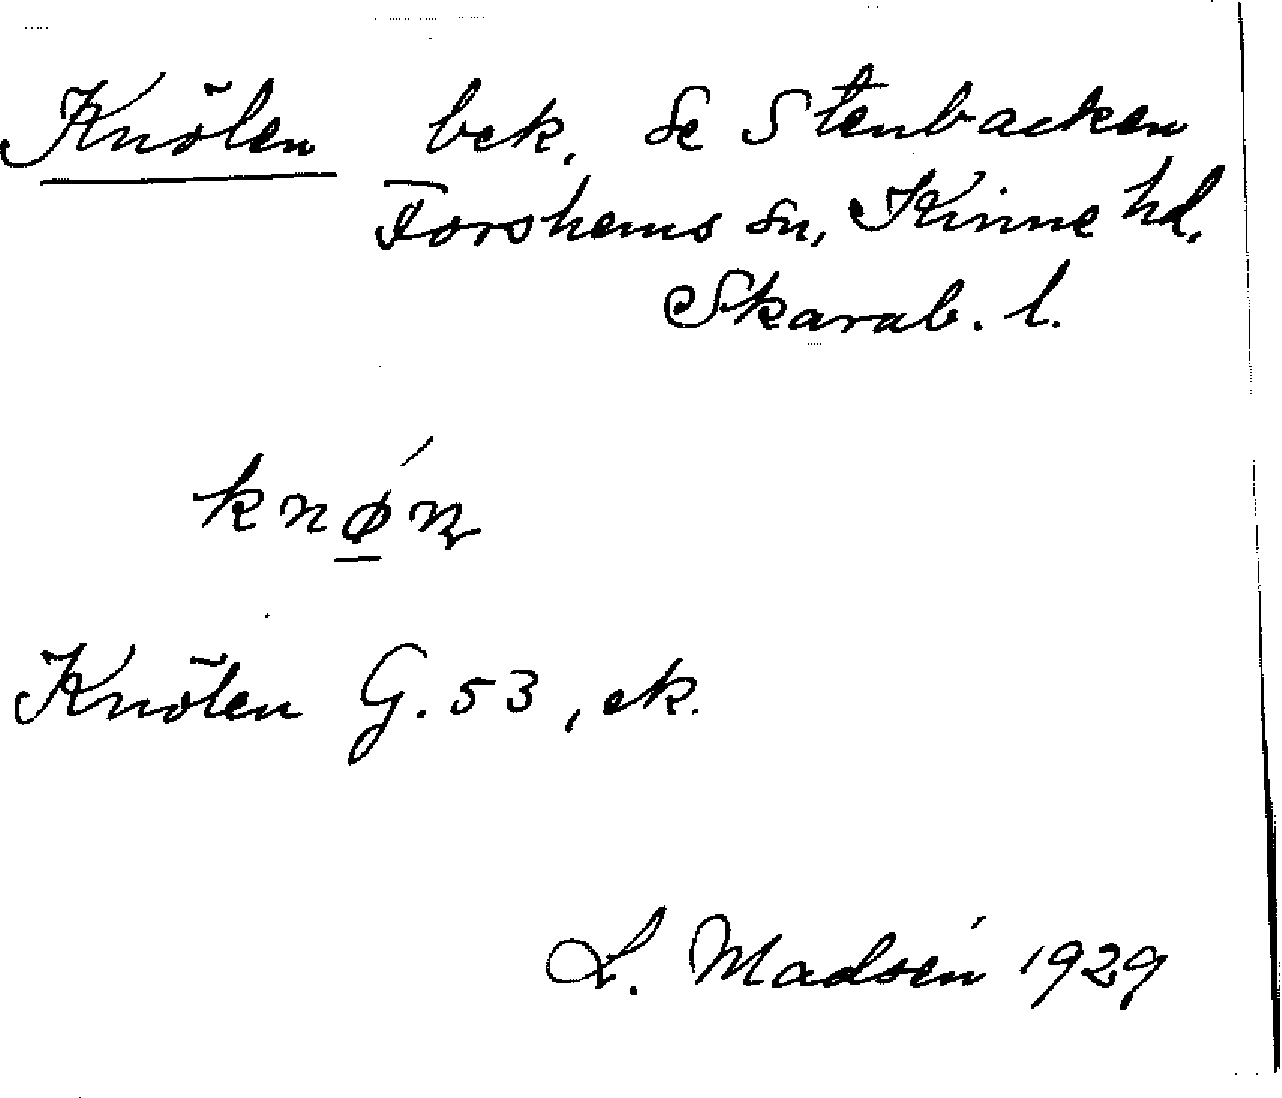 Knölen bek. Se Stenbacken
Forshems sn, Kinne hd.
Skarab. l.
knǿ̲n
Knölen G. 53, ek.
L. Madsén 1929